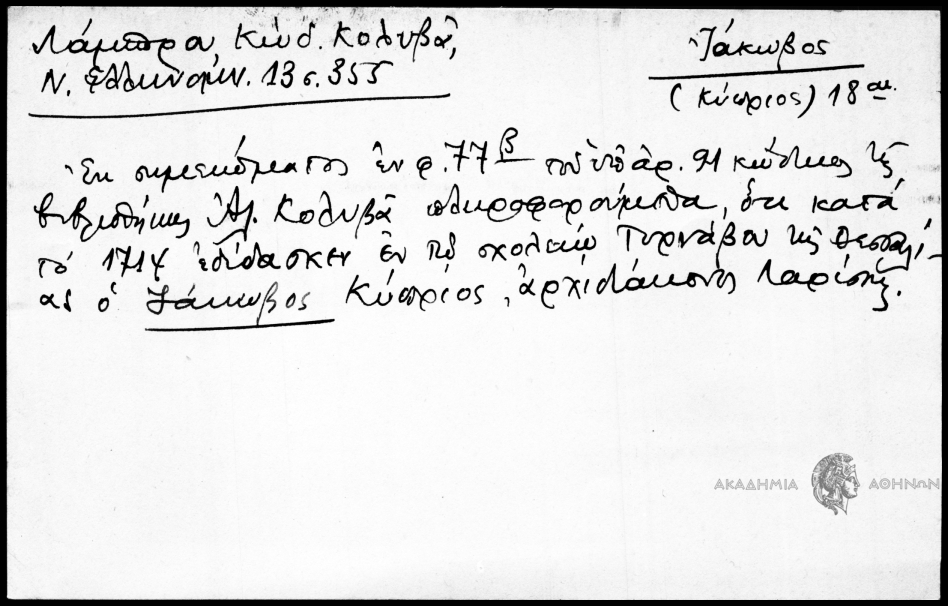 Λάμπρου, Κώδ. Κολυβᾶ,
Ν. Ἑλληνομν. 13 σ. 355
Ἰάκωβος
(Κύπριος) 18 αι.
Ἐκ σημειώματος ἐν φ. 77β τοῦ ὑπ' ἀρ. 91 κώδικος τῆς
βιβλιοθήκης Ἀλ. Κολυβᾶ πληροφορούμεθα, ὅτι κατά
τό 1714 ἐδίδασκεν ἐν τῷ σχολείῳ Τυρνάβου τῆς Θεσσαλί-
ας ὁ Ἰάκωβος Κύπριος, ἀρχιδιάκονος Λαρίσης.
ΑΚΑΔΗΜΙΑ ΑΘΗΝΩΝ